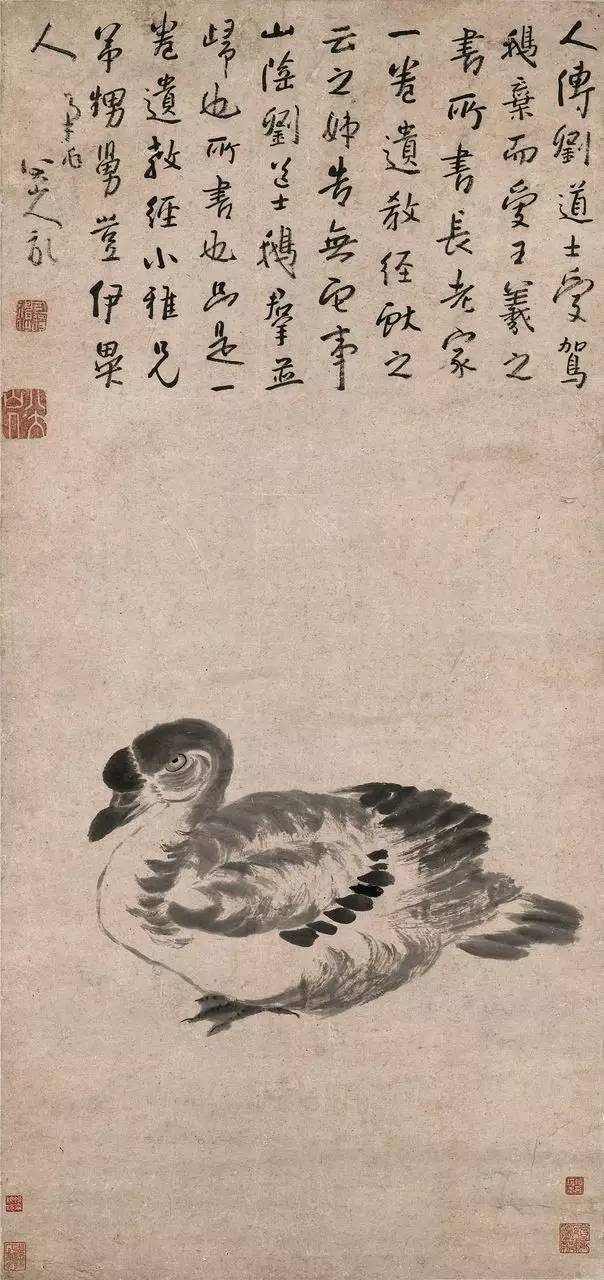 人傳劉道士愛鴐
鵝棄而愛王羲之
書所書長老家
一卷遺教經獻之
云之姊告無它事
山陰劉道士鵝羣並
歸也所書也只是一
卷遺教經小雅兄
弟甥舅豈伊異
人
八大山人記